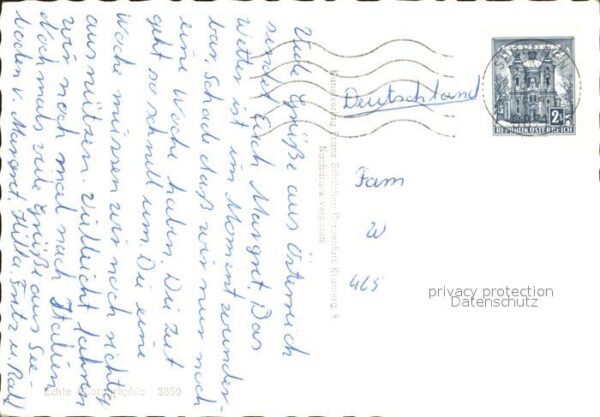 Viele Grüße aus Österreich
sendet Euch Margret. Das
Wetter ist im Moment wunder-
bar. Schade daß wir nur noch
eine Woche haben. Die Zeit
geht so schnell um. Die eine
Woche müssen wir noch richtig
ausnützen. Vielleicht fahren
wir noch mal nach Italien
doch mals viele Grüße aus See-
boden v. Margret, Hilla Fritz u. Ralf
Deutschland
Fam
W
465
REPUBLIK ÖSTERREICH
2
Franz Schilcher, Klagenfurt,
Nachdruck verboten
Echte Photographie 3859
privacy protection
Datenschutz